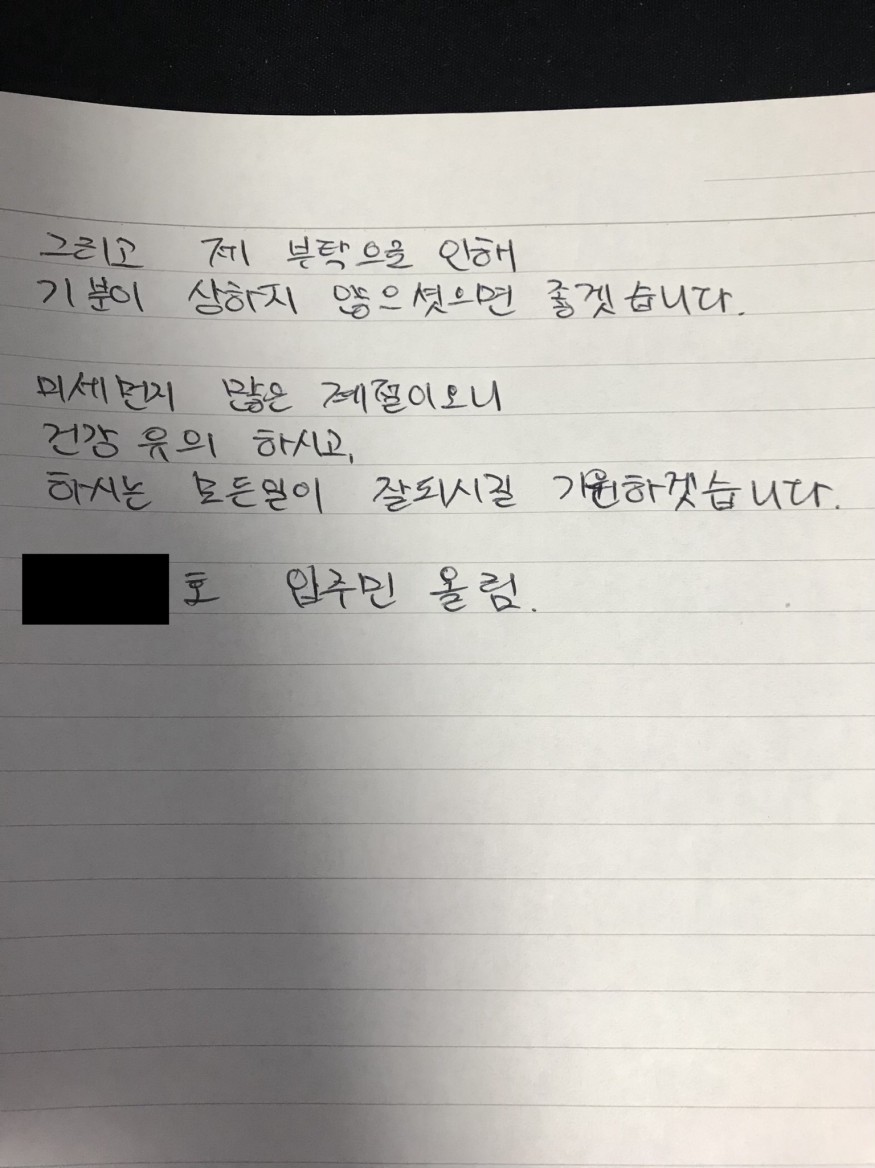 그리고 제 부탁으로 인해
기분이 상하지 않으셧으면 좋겟습니다.
미세먼지 많은 계절이오니
건강 유의 하시고,
하시는 모든일이 잘되시길 기원하겟습니다.
호 입주민 올림.